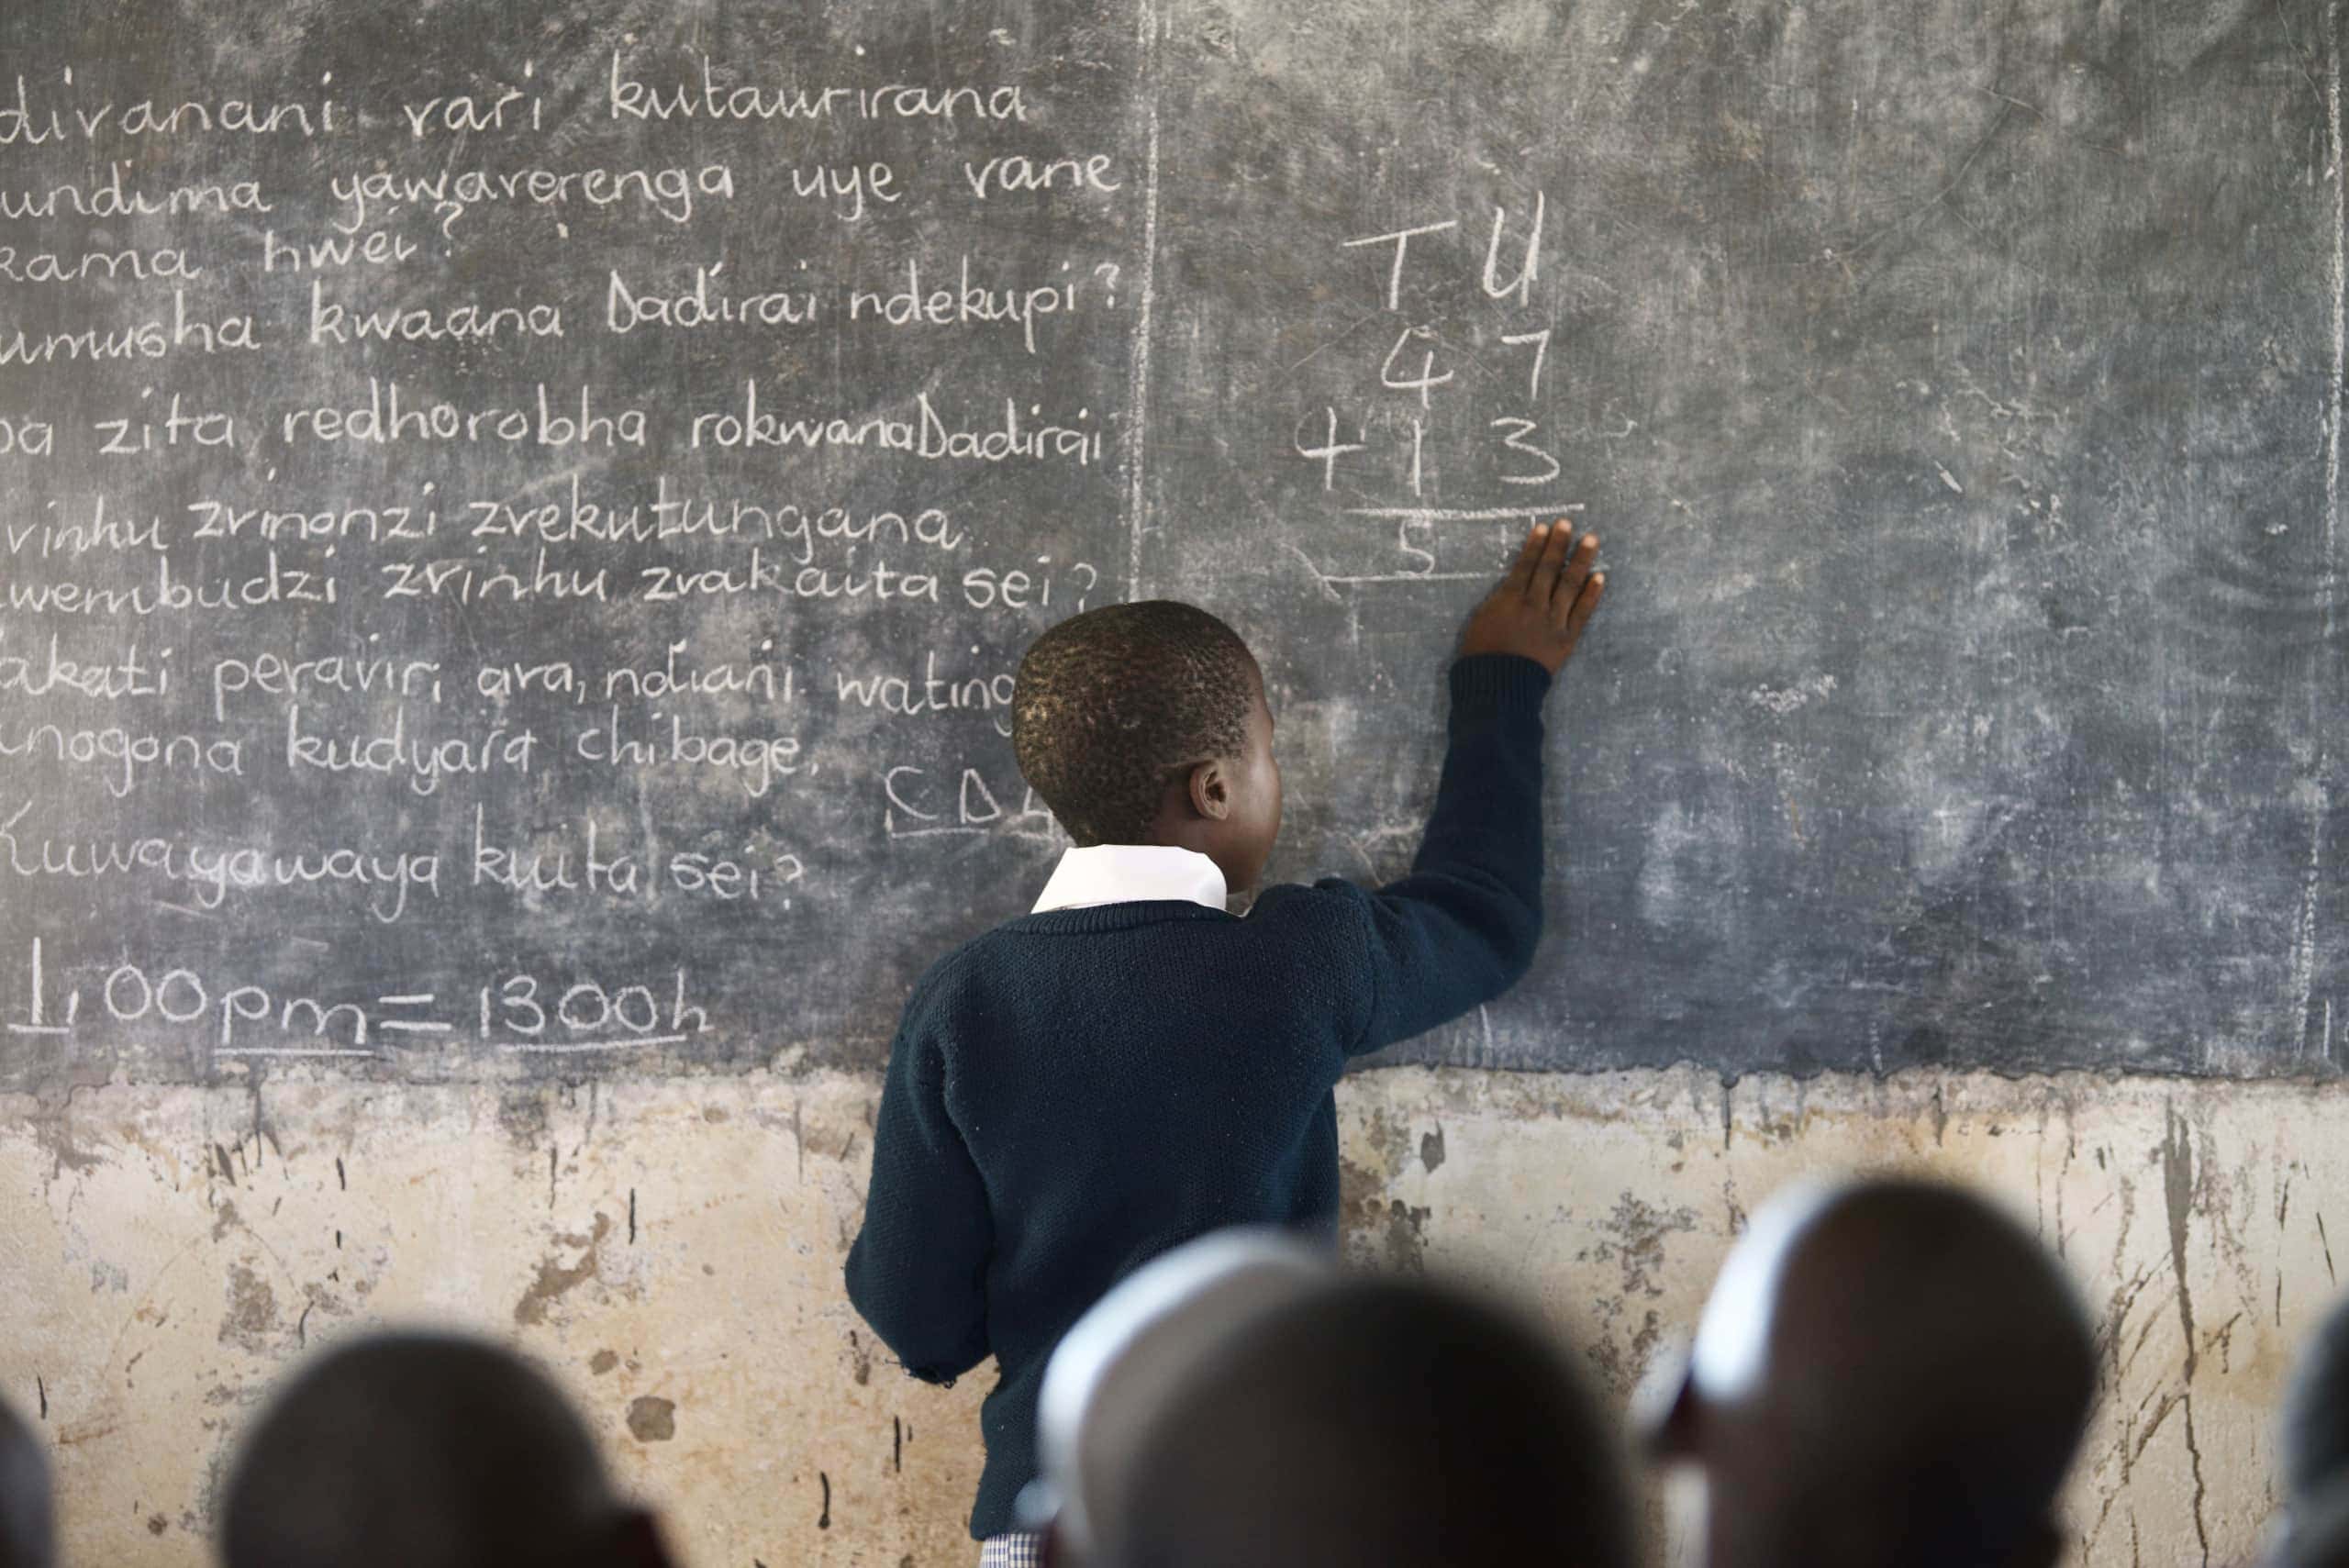 divanani vari kutaurirana
undima yawaverenga uye vane
kama hwei?
umusha kwaana Dadirai ndekupi?
pa zita redhorobha rokwana Dadirai
vinhu zvinonzi zvekutungana
wembudzi zvinhu zvakaita sei?
akati peraviri ava, ndiani wating
inogona kudyara chibage.
Kuwayawaya kuita sei?
1,00pm = 1300h
T U
4 7
+ 1 3
5